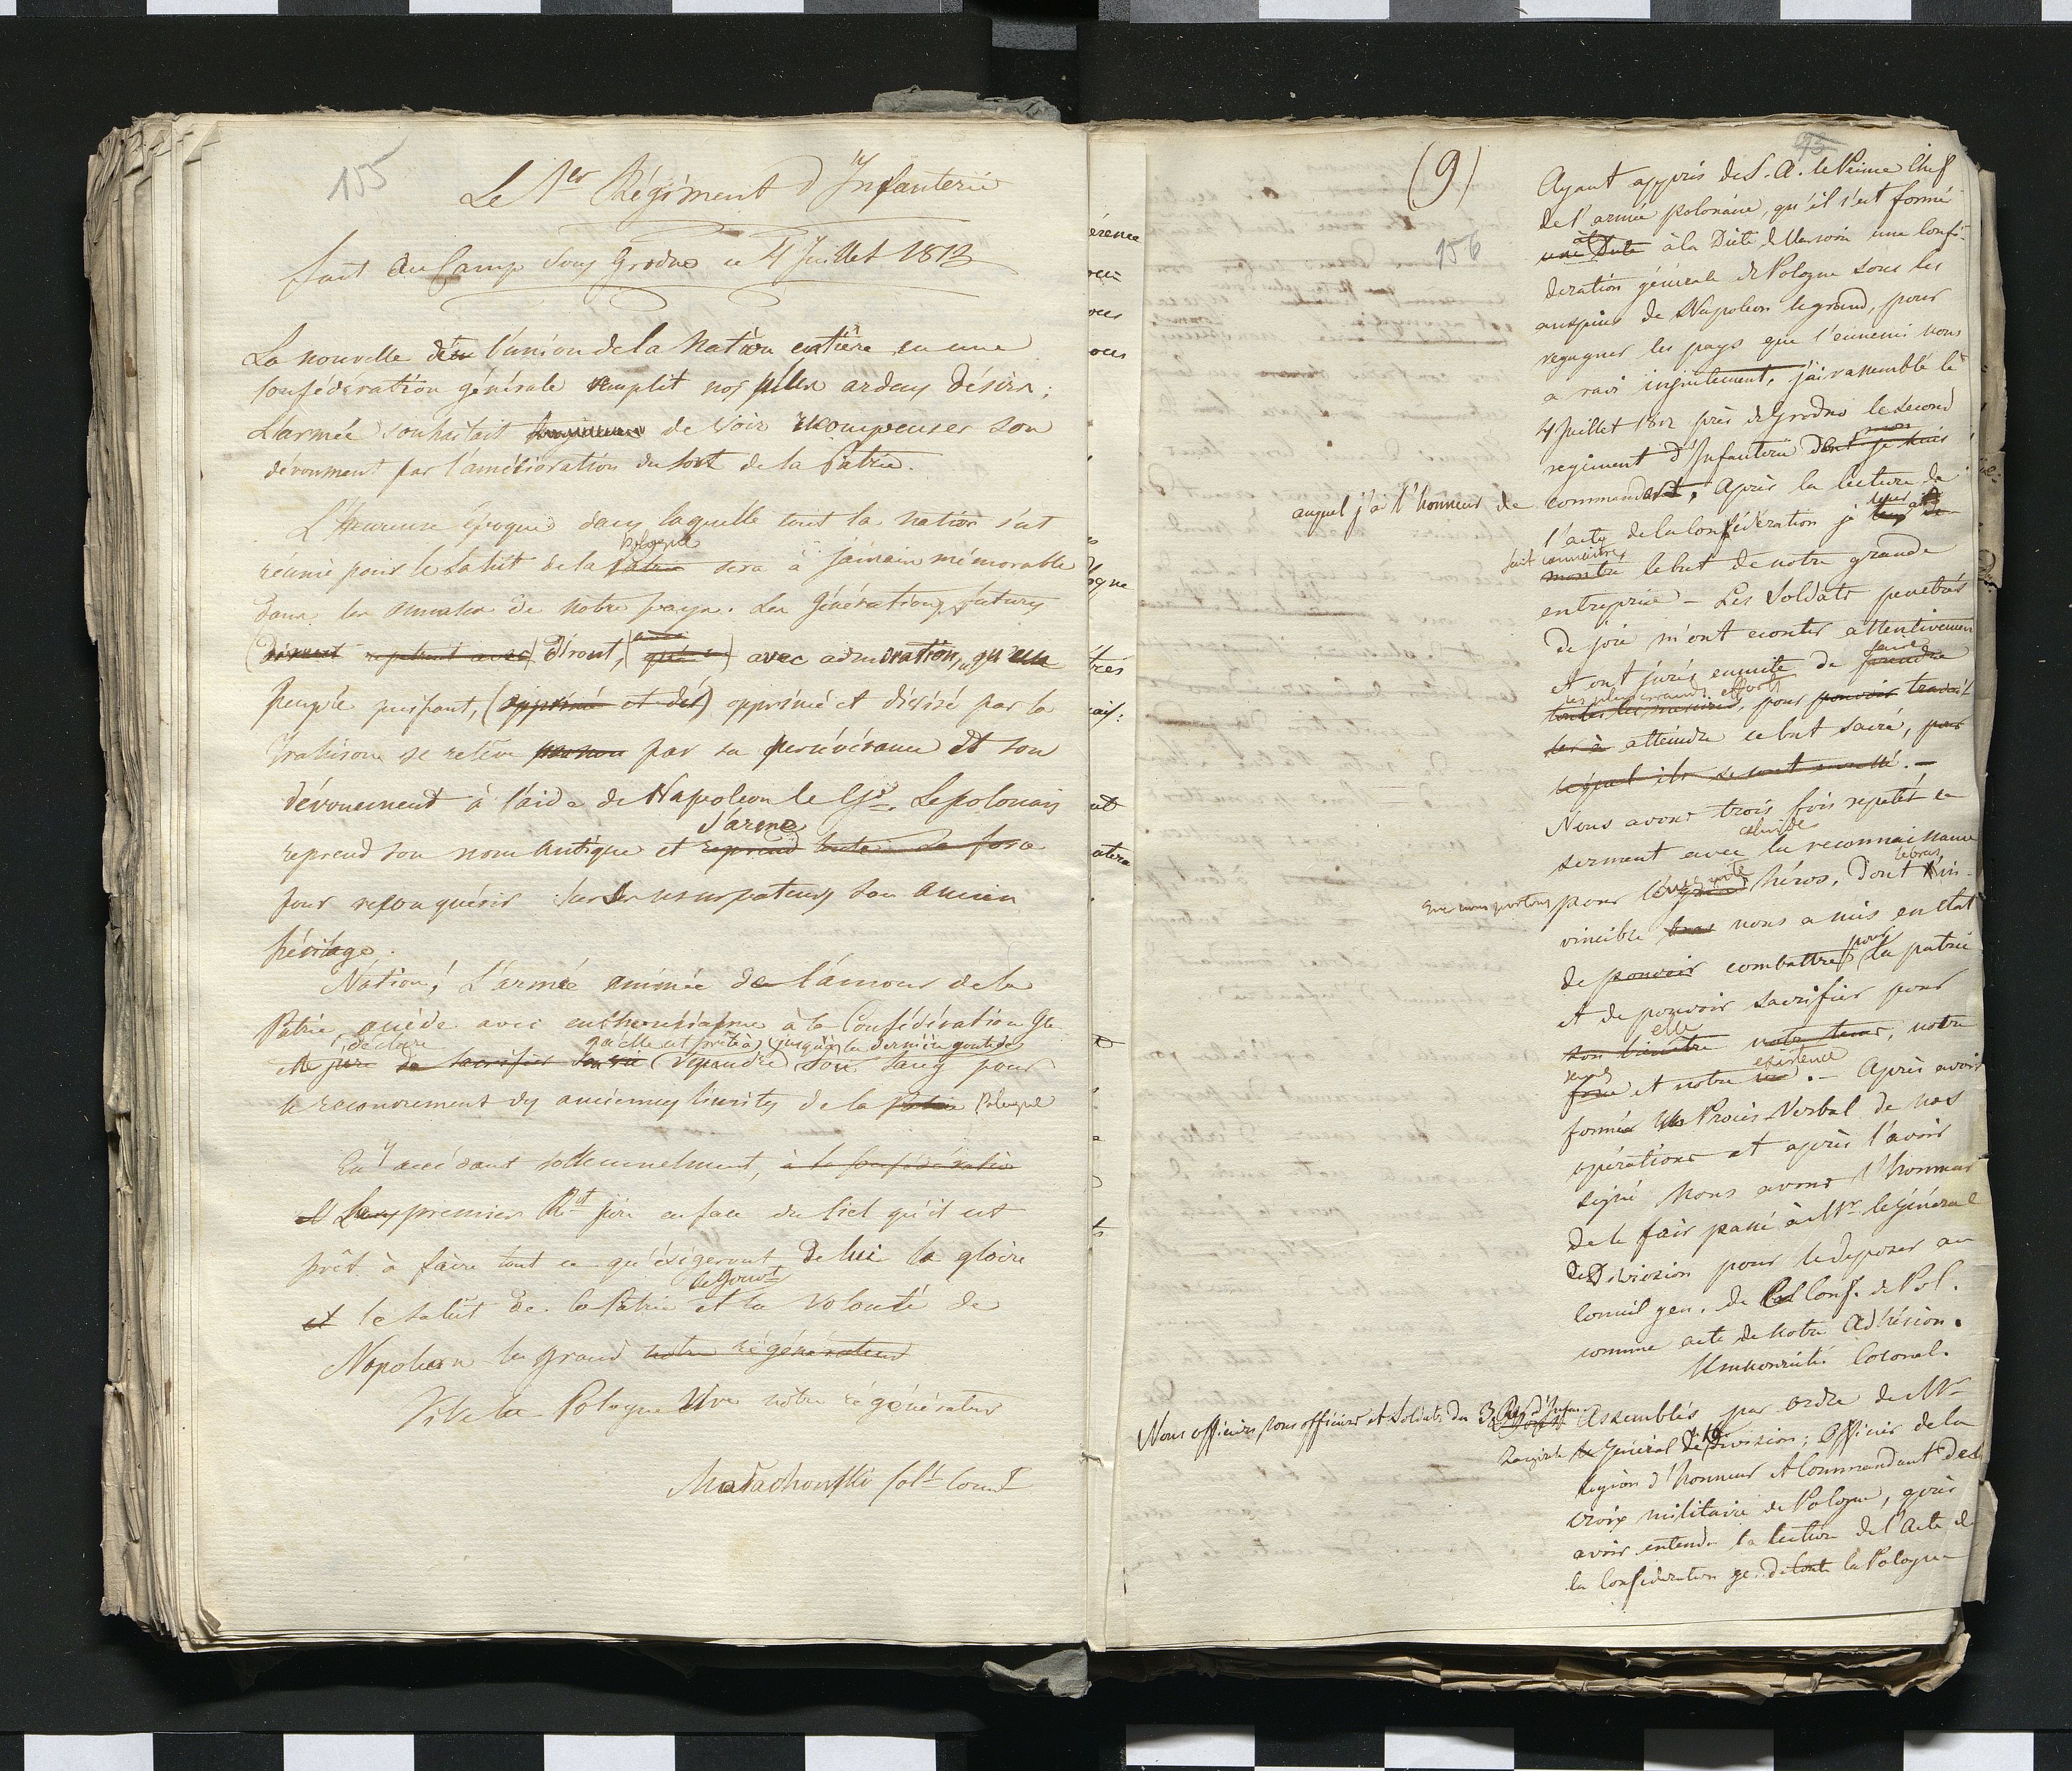 155
Le 1er Régiment d'Infanterie
fait au Camp sous Grodno ce 4 Juillet 1812
La nouvelle de l'union de la Nation entière en une
Confédération générale remplit nos plus ardens désirs;
L'armée souhaitait de voir recompenser son
dévoument par l'amélioration du sort de la Patrie.
L'Heureuse époque dans laquelle tout la nation s'est
Pologne
réunie pour le salut de la Patrie sera à jamais mémorable
dans les annales de notre pays. Les Générations futures
diront, avec admiration, qu'un
peuple puissant, (opprimé et dét) opprimé et divisé par la
trahison se relève par sa persévérance et son
dévouement à l'aide de Napoleon le Gd. Le polonais
s'arme
reprend son nom Antique et reprend toute sa force
pour reconquérir sur les usurpateurs son ancien
héritage.
Nation! L'armée animée de l'amour de la
Patrie, accède avec enthousiasme à la Confédération Gle
déclare qu'elle est prête à jusqu'à la dernière goutte de
et jure de sacrifier sa vie (répandre) son sang pour
le recouvrement des anciennes limites de la Patrie Pologne
En y accédant sollennelment, à la confédération
Le premier Rt jure en face du Ciel qu'il est
prêt à faire tout ce qu'éxigeront de lui la gloire
le Gouvt
et le salut de la Patrie et la volonté de
Napoleon le grand notre régénérateur
Vive la Pologne Vive notre régénérateur
Małachowski Col. Comt
(9)
93
156
Ayant appris de S. A. le Prince Chef
de l'armée polonaise, qu'il s'est formé
une Diète à la Diète de Varsovie une Confé-
deration générale de Pologne sous les
auspices de Napoleon le grand, pour
regagner les pays que l'ennemi nous
a ravi injustement, j'ai rassemblé le
4 Juillet 1812 près de Grodno le second
regiment d'Infanterie dont je suis
auquel j'ai l'honneur de commander. Après la lecture de
l'acte de la Confédération je leur ai
fait connaitre
montré le but de notre grande
entreprise - Les Soldats penetrés
de joie m'ont ecoutés attentivement
faire
et ont jurés ensuite de prendre
les plus grands efforts
toutes les mesures, pour pouvoir travail-
ler à atteindre ce but sacré, pour
lequel ils se sont
Nous avons trois fois repetés ce
celui de
serment avec la reconnaissance
le bras
que nous portons pour le grand héros, dont l'in-
vincible bras nous a mis en état
pour
de pouvoir combattre la patrie
et de pouvoir sacrifier pour
elle
son bienêtre notre, notre
existence
force et notre vie. - Après avoir
formé un Procès-Verbal de nos
opérations et après l'avoir
signé Nous avons l'honneur
de le fair passé à Mr le Général
de Division pour le deposer au
Conseil gen. de la Conf. de Pol.
comme acte de notre Adhésion.
Krukowiecki Colonel.
Nous officiers, sous officiers et Soldats du 3 Reg d'Infanterie Assemblés par ordre de Mr
Zayączek le Général de Division; Officier de la
Legion d'honneur et Commandant de la
croix militaire de Pologne, après
avoir entendu la lecture de l'Acte de
la Confédération ge. de toute la Pologne